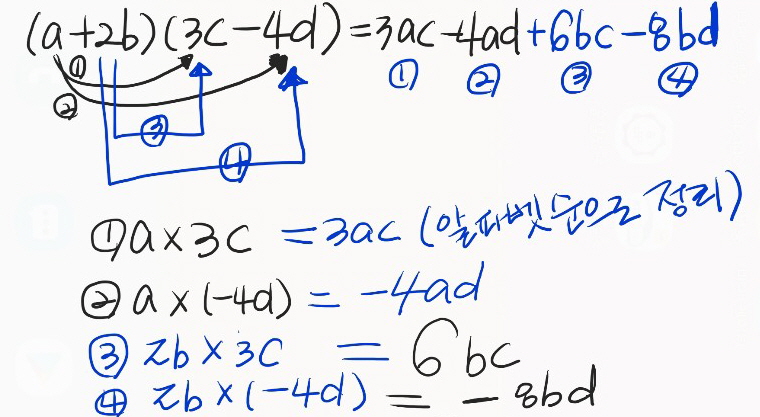 (a+2b)(3c-4d)=3ac-4ad+6bc-8bd
① ② ③ ④
①
②
③
④
①a×3c =3ac (알파벳 순으로 정리)
②a×(-4d)= -4ad
③ 2b×3c = 6bc
④ 2b×(-4d) = -8bd